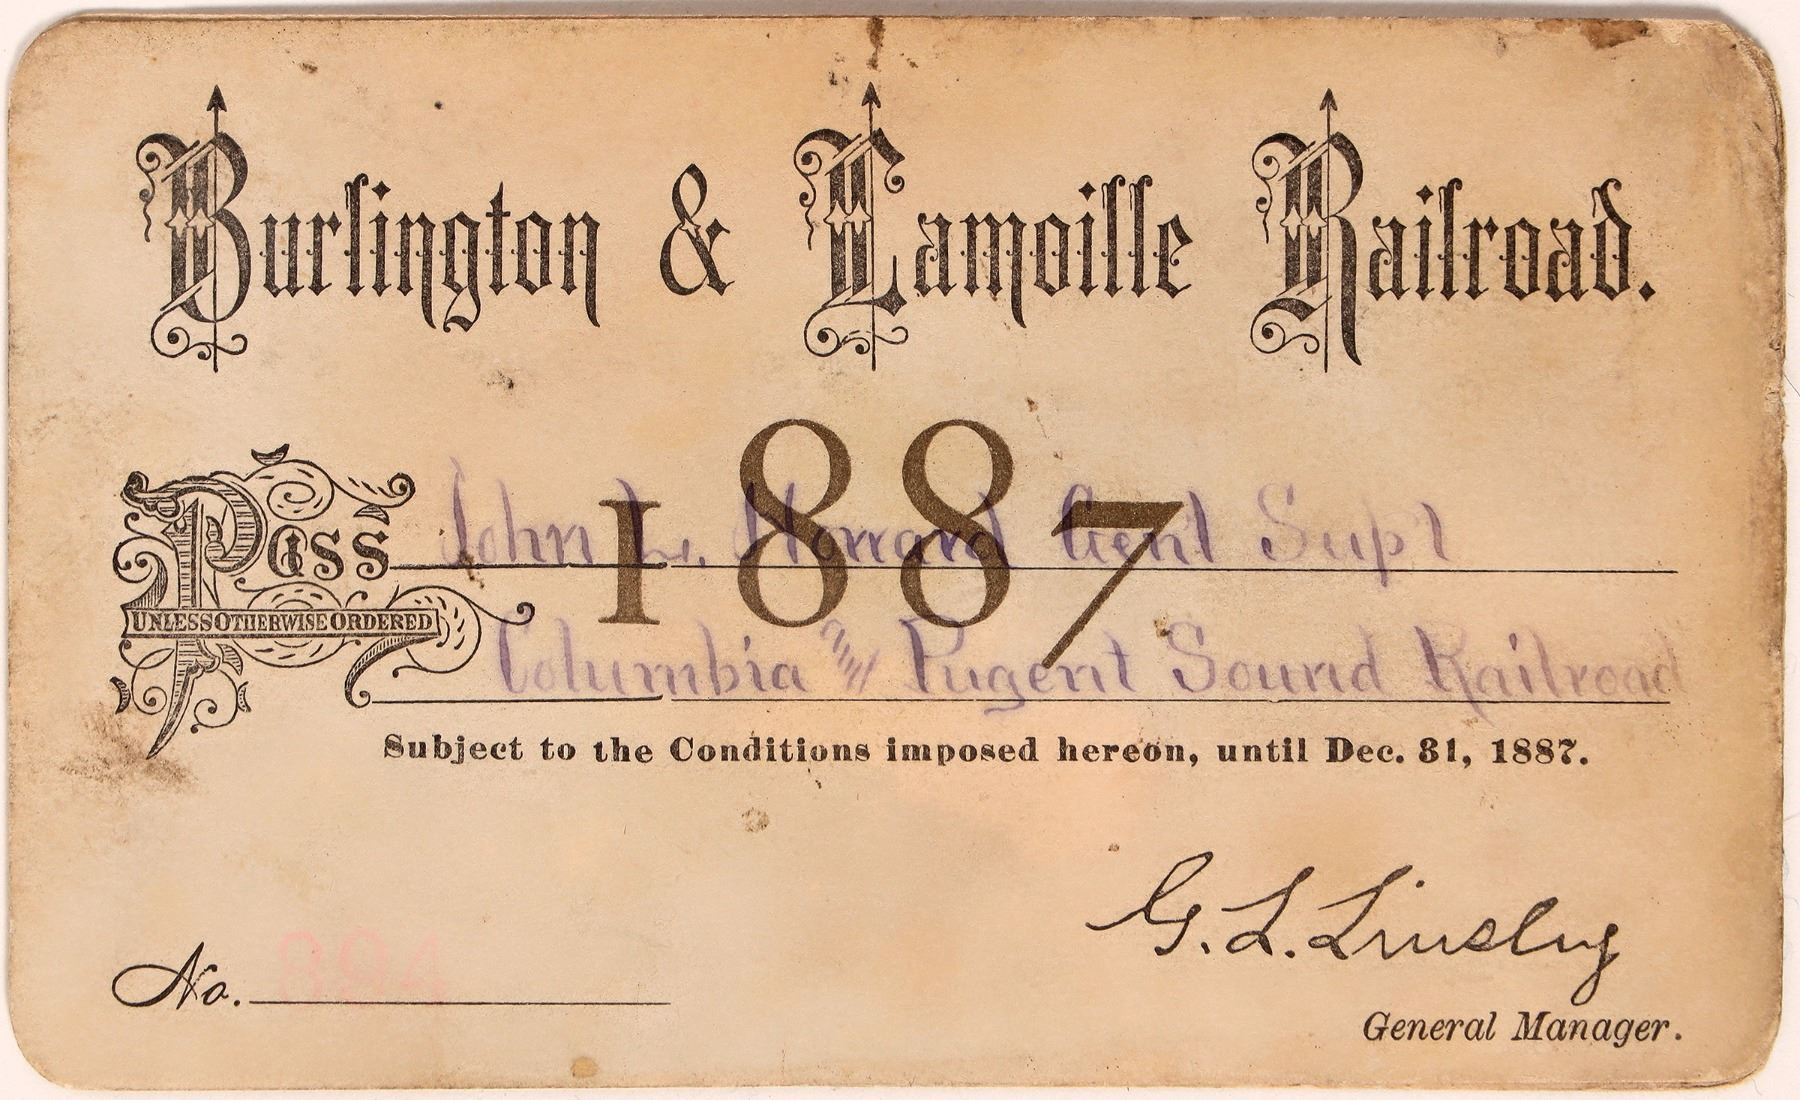 Burlington & Lamoille Railroad.
1887
Pass John L. Howard Genl Supt
UNLESS OTHERWISE ORDERED
Columbia and Pugent Sound Railroad
Subject to the Conditions imposed hereon, until Dec. 31, 1887.
G. L. Linsley
No. 894
General Manager.